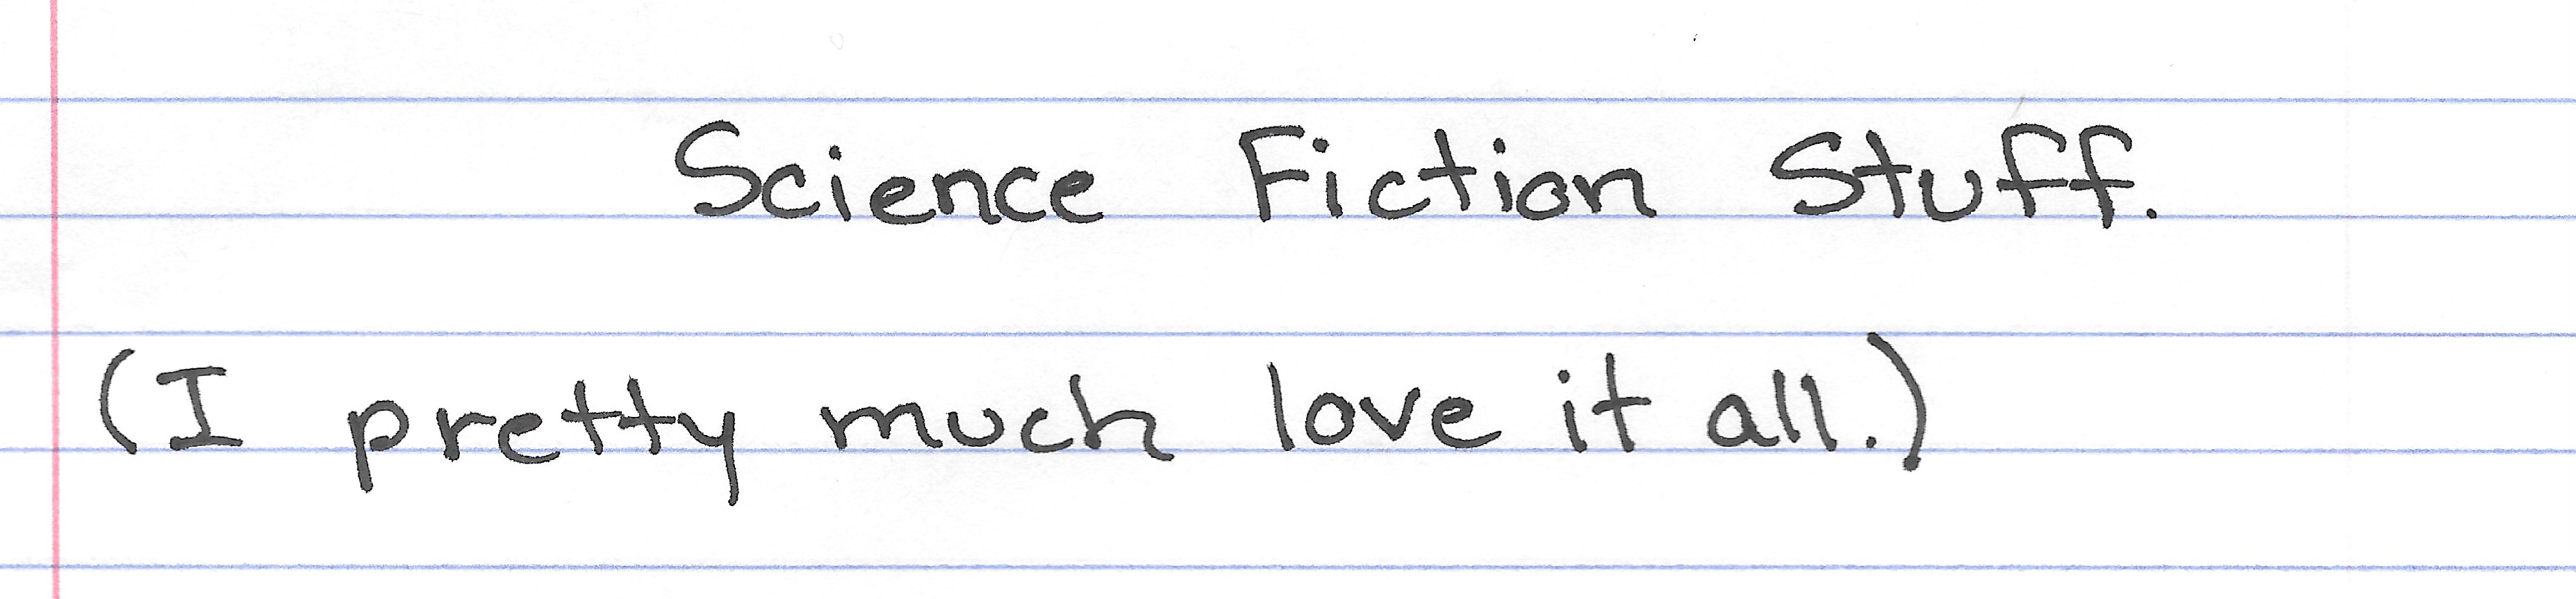 Science Fiction Stuff.
(I pretty much love it all.)